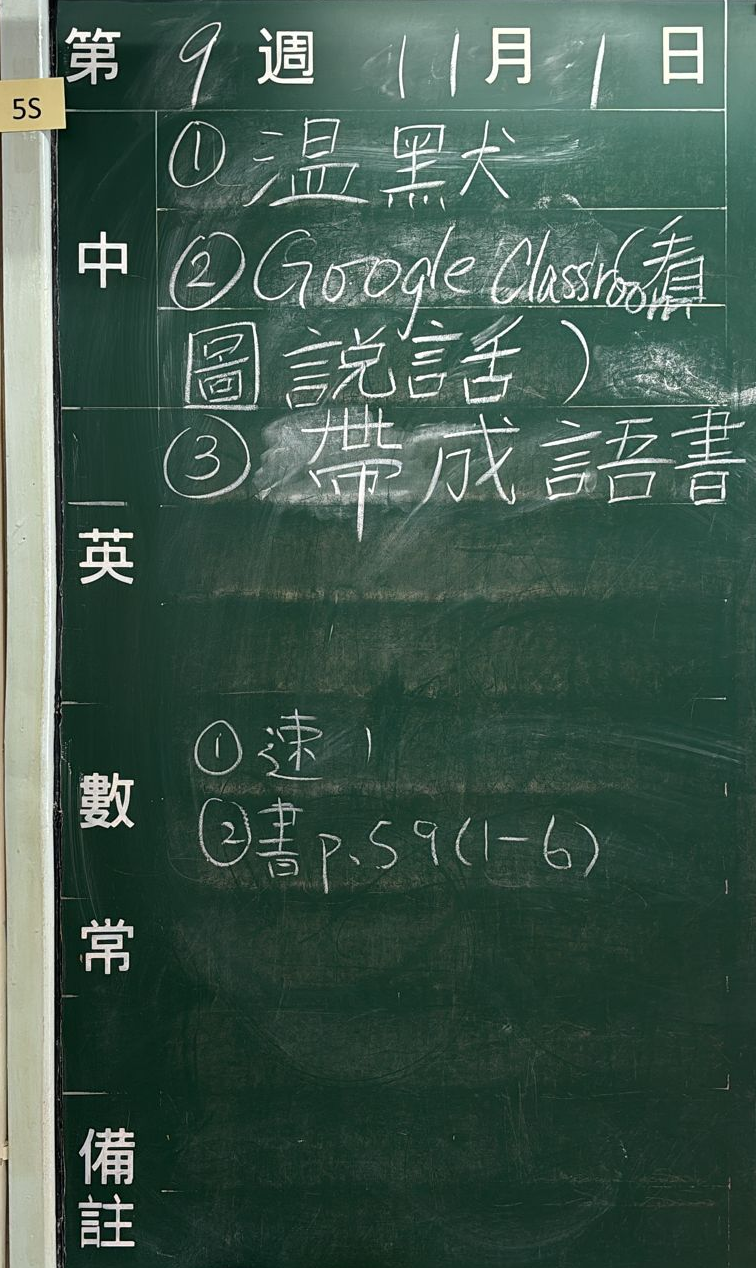 5S
第 9 週 11 月 1 日
中
① 温默
② Google Classroom(看
圖說話)
③ 帶成語書
英
數
① 速1
② 書p.59(1-6)
常
備註